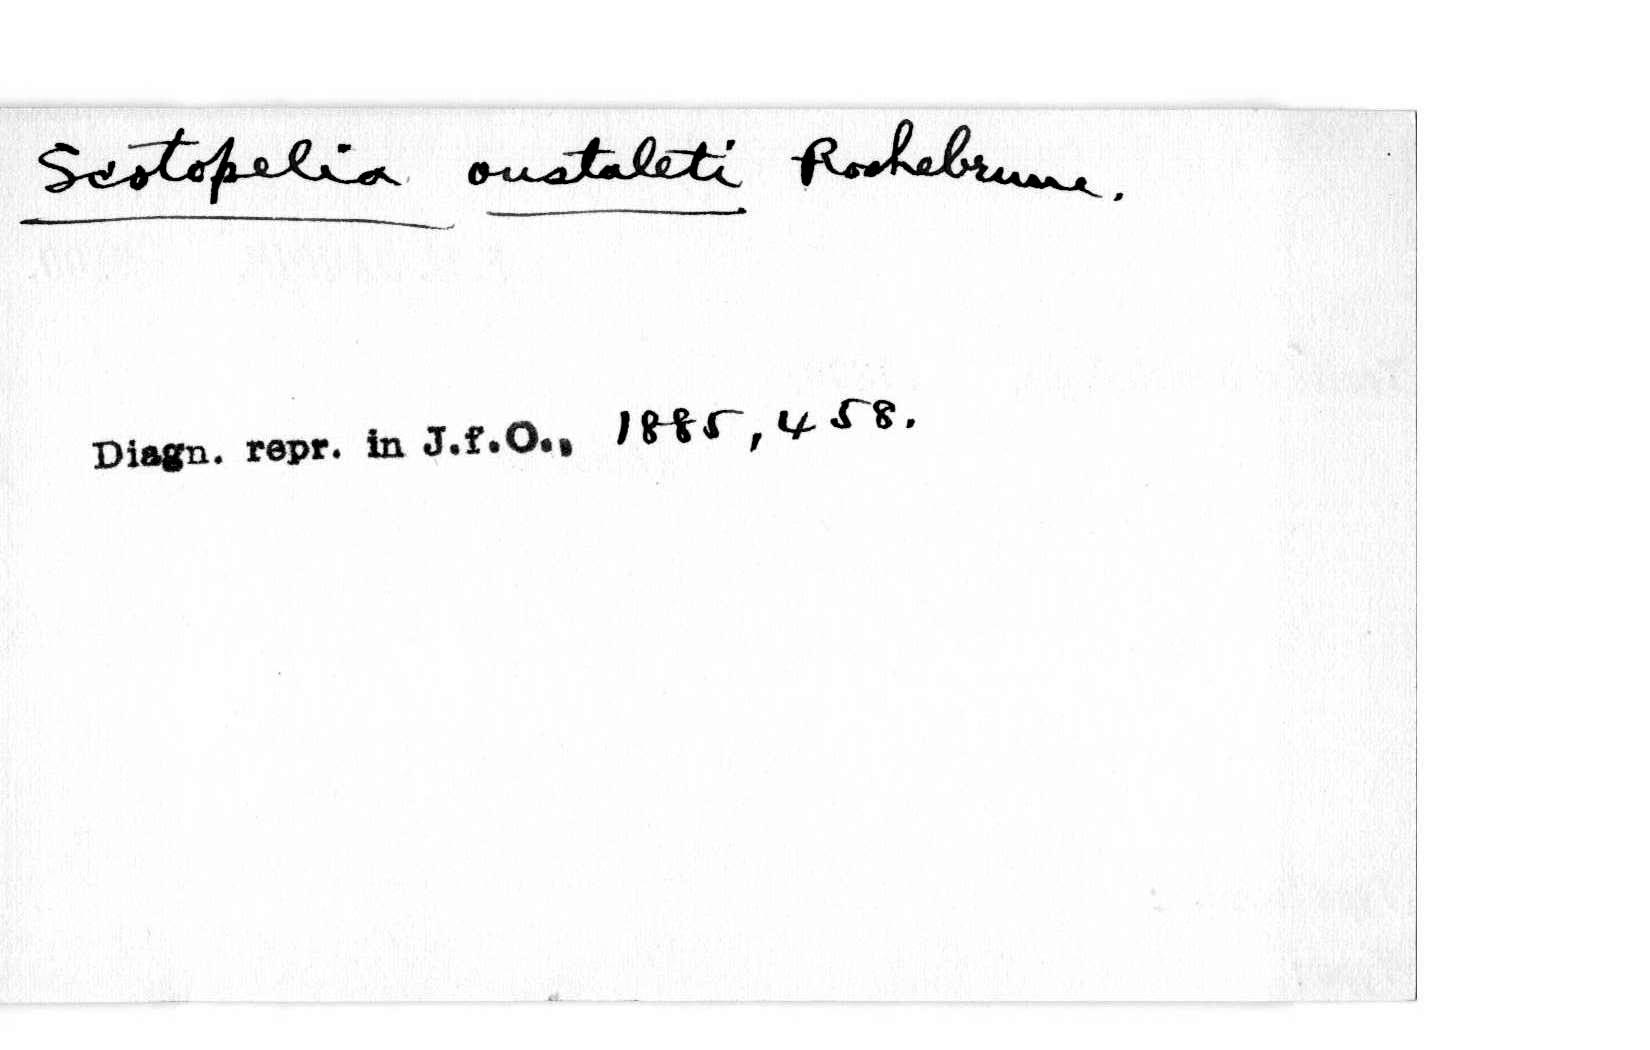 Scotopelia oustaleti Rochebrune.
Diagn. repr. in J.f.O., 1885, 458.